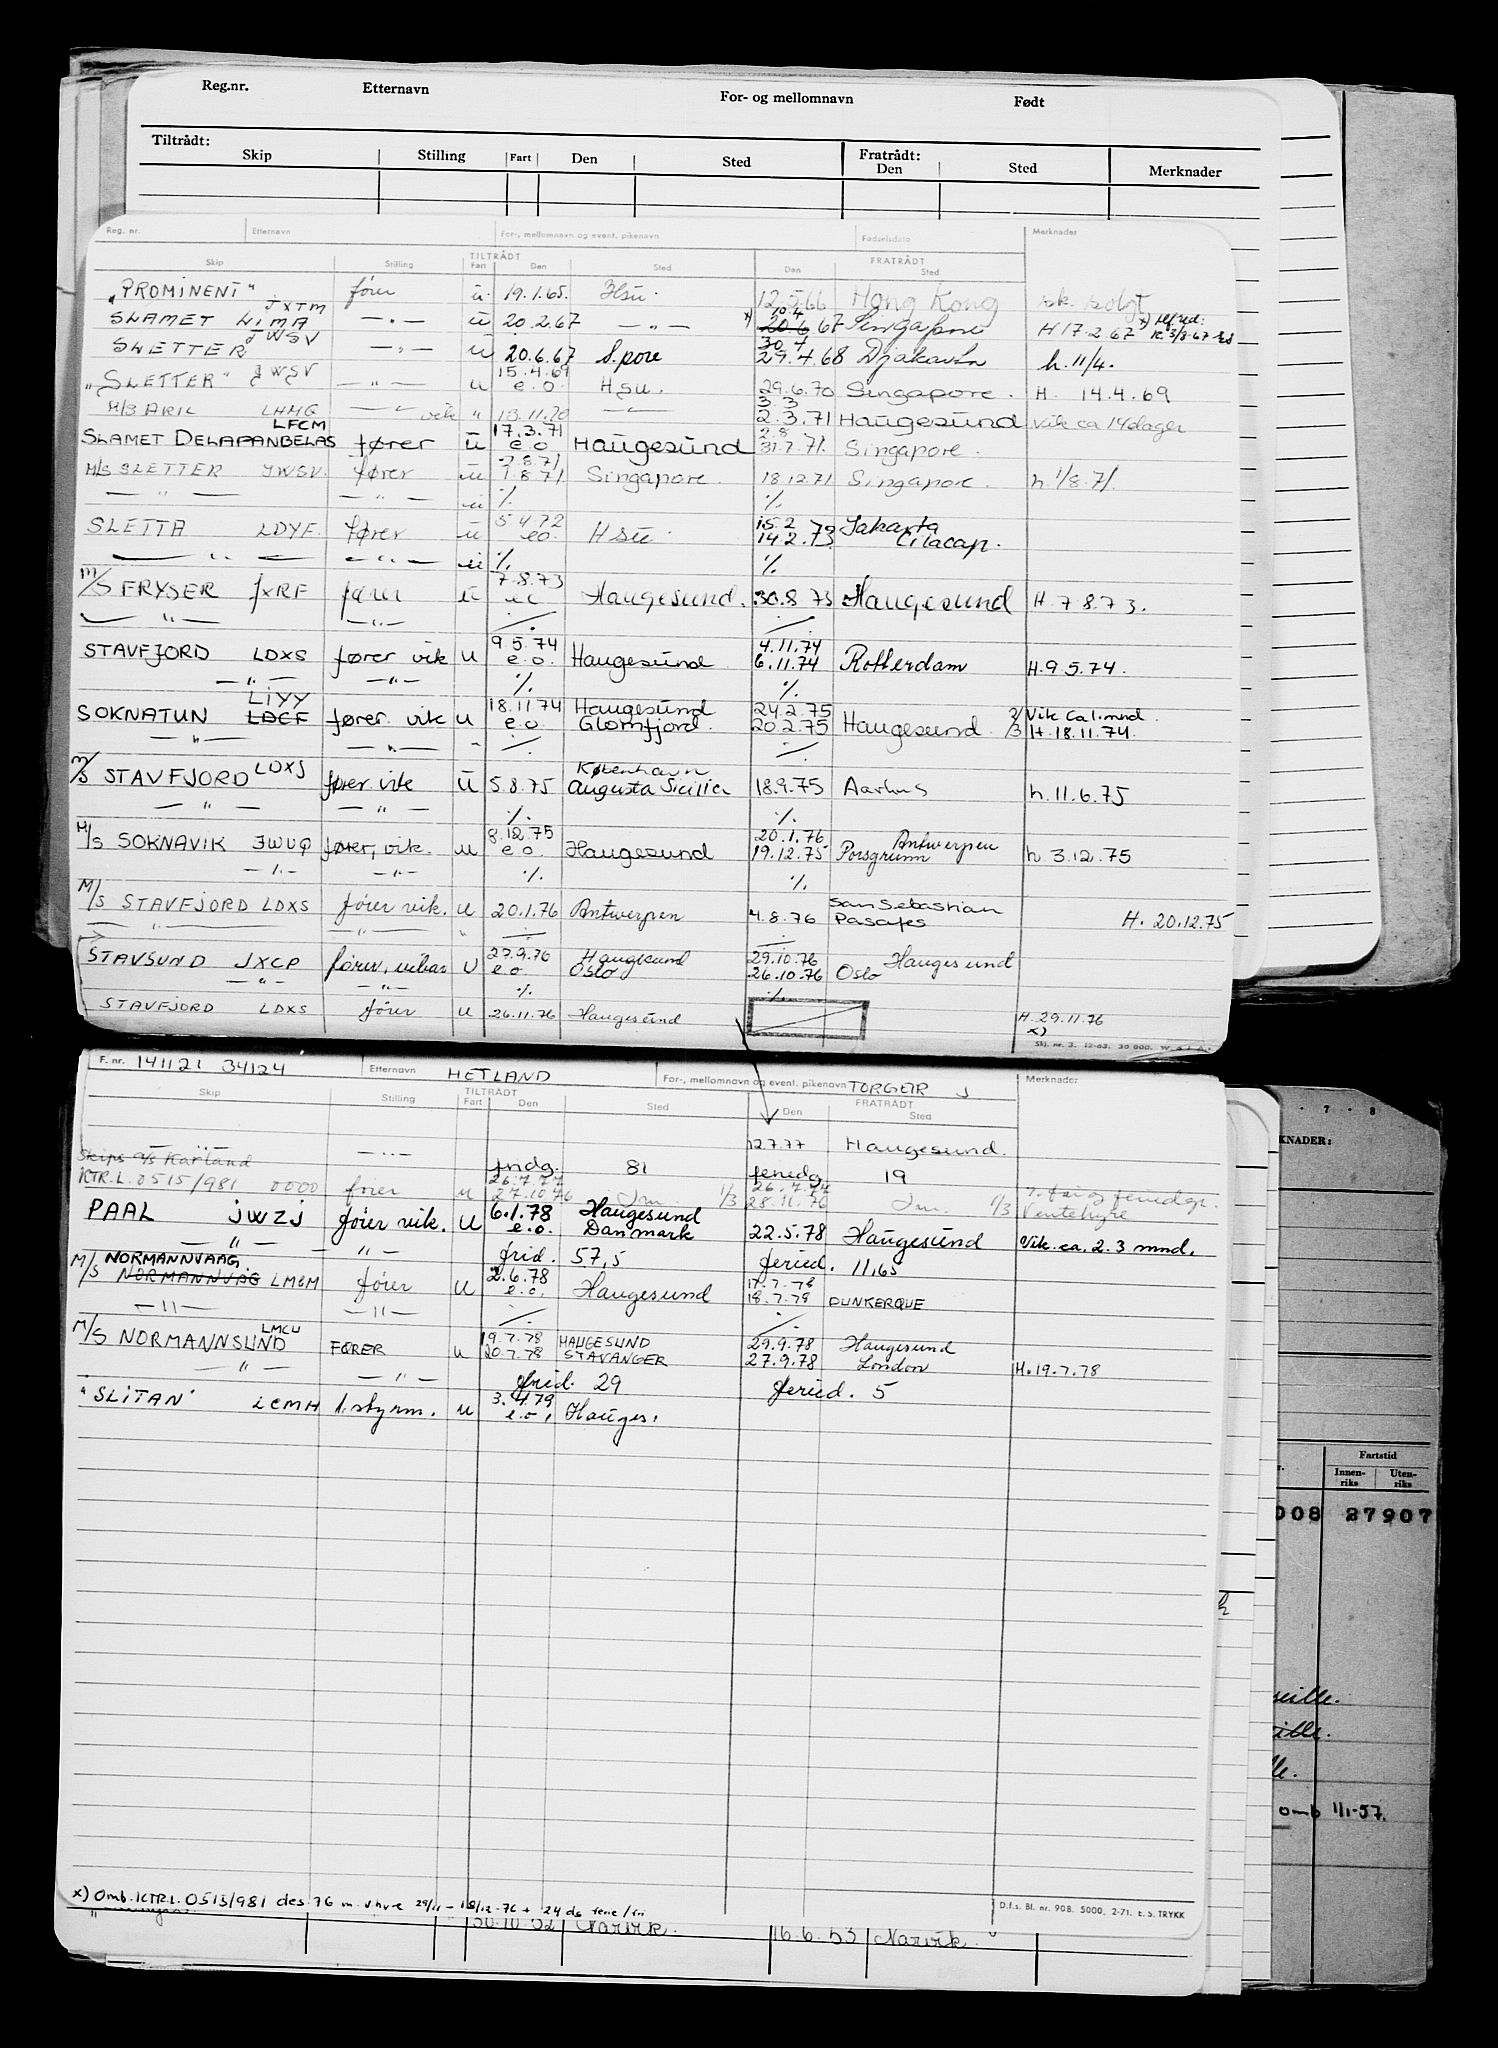 Reg.nr. Etternavn For- og mellomnavn Født
Tiltrådt: Fratrådt:
Skip Stilling Fart Den Sted Den Sted Merknader
Reg. nr. Etternavn For-, mellomnavn og event. pikenavn Fødselsdato Merknader
TILTRÅDT FRATRÅDT
Skip Stilling Fart Den Sted Den Sted
"PROMINENT" fører u. 19.1.65. Hsu. 12.5.66 Hong Kong sk. solgt
JXTM 10.4 x) Alfred:
SLAMET LIMA —"— u 20.2.67 —"— x) 20.6.67 Singapore H 17.2.67
JWSV 30.4
SLETTER —"— u 20.6.67 S.pore 29.4.68 Djakarta h. 11/4.
15.4.69
"SLETTER" JWSV —"— u e.o. Hsu. 29.6.70 Singapore. H. 14.4.69
3.3
M/S ARIL LHMG —"— vik " 13.11.70 —"— 2.3.71 Haugesund Vik ca 14 dager
LFCM 17.3.71 2.8
SLAMET DELAPANBELAS fører u e.o Haugesund 31.7.71. Singapore.
2.8.71
M/S SLETTER JWSV. fører u 1.8.71 Singapore. 18.12.71 Singapore. h 1/8.71.
—"— —"— u %. %.
5.4.72 15.2 Jakarta
SLETTA LDYF. fører u eo. Hsu. 14.2.73 Cilacap.
—"— —"— u %. %.
7.8.73
M/S FRYSER JXRF fører u Haugesund. 30.8.73 Haugesund H. 7.8.73.
—"— —"— %. %.
9.5.74 4.11.74
STAVFJORD LDXS fører vik u e.o. Haugesund 6.11.74 Rotterdam H.9.5.74.
—"— —"— %. %.
LIYY 18.11.74 Haugesund 24.2.75 Vik Ca 1.mnd.
SOKNATUN LDCF fører vik u e.o. Glomfjord. 20.2.75 Haugesund 2/3 H. 18.11.74.
—"— —"— " %. %.
København
M/S STAVFJORD LDXS fører vik u 5.8.75 Augusta Sicilia 18.9.75 Aarhus h. 11.6.75
—"— —"— %. %.
8.12.75 20.1.76 Antwerpen
M/S SOKNAVIK JWUQ fører, vik. u e.o. Haugesund 19.12.75 Porsgrunn h 3.12.75
—"— —"— %. %.
San Sebastian
M/S STAVFJORD LDXS fører vik. u 20.1.76 Antwerpen 4.8.76 Pasajes H. 20.12.75
—"— —"— " %. %.
27.9.76 Haugesund 29.10.76 Haugesund
STAVSUND JXCP fører, vikar U e.o Oslo 26.10.76 Oslo
—"— —"— %. %.
STAVFJORD LDXS fører u 26.11.76 Haugesund H. 29.11.76
x)
Skj. nr. 3. 12-63. 30 000. W.
F. nr. 141121 34124 Etternavn HETLAND For-, mellomnavn og event. pikenavn TORGEIR J Merknader
TILTRÅDT FRATRÅDT
Skip Stilling Fart Den Sted Den Sted
—"— —"— 12.7.77 Haugesund.
Skips a/s Karland fridg. 81 feriedg 19
26.7.77 26.7.77
KTR.L. 0515/981 0000 fører u 27.10.76 1/3 28.11.76 1/3 Ventehyre
6.1.78 Haugesund
PAAL JWZJ fører vik. U e.o. Danmark 22.5.78 Haugesund Vik. ca. 2.3 mnd.
—"— —"— frid. 57,5 feried. 11,65
NORMANNVAAG 2.6.78 17.7.78
M/S NORMANNVÅG LMGM fører U e.o. Haugesund 18.7.78 DUNKERQUE
—"— —"— %. %.
LMCU 19.7.78 HAUGESUND 29.9.78 Haugesund
M/S NORMANNSUND FØRER u 20.7.78 STAVANGER 27.9.78 London H. 19.7.78
—"— —"— frid. 29 feried. 5
"SLITAN" LCMH 1. styrm. u 3.4.79
e.o. Hauges.
KNADER:
Fartstid
Innenriks Utenriks
008 27907
seille.
ille.
lle.
omb 1/1-57.
x) Omb. KTR.L. 0515/981 des. 76 m. v hyre 29/11 - 18/12-76 + 24 dg ferie/fri
D.f.s. Bl. nr. 908. 5000. 2-71. E.S. TRYKK
30.10.52 Narvik. 16.6.53 Narvik.